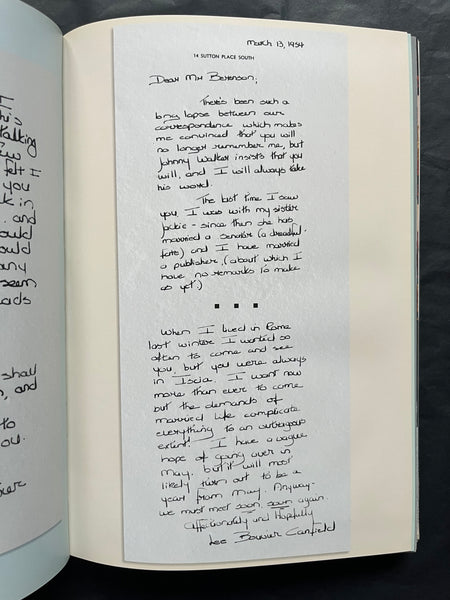 I
his
talking
few
felt I
you
k in
. and
ould
ould
any
seen
ads
shall
n, and
to
you.
March 13, 1954
14 SUTTON PLACE SOUTH
Dear Mr Berenson,
There's been such a
long lapse between our
correspondence which makes
me convinced that you will
no longer remember me, but
Johnny Walker insists that you
will, and I will always take
his word.
The last time I saw
you, I was with my sister
Jackie - since then she has
married a senator (a dreadful
fate) and I have married
a publisher, (about which I
have no remarks to make
as yet.)
■ ■ ■
When I lived in Rome
last winter I wanted so
often to come and see
you, but you were always
in Iscia. I want now
more than ever to come
but the demands of
married life complicate
everything to an outrageous
extent. I have a vague
hope of going over in
May. but it will most
likely turn out to be a
year from May. Anyway-
we must meet soon, soon again.
Affectionately and Hopefully
Lee Bouvier Canfield